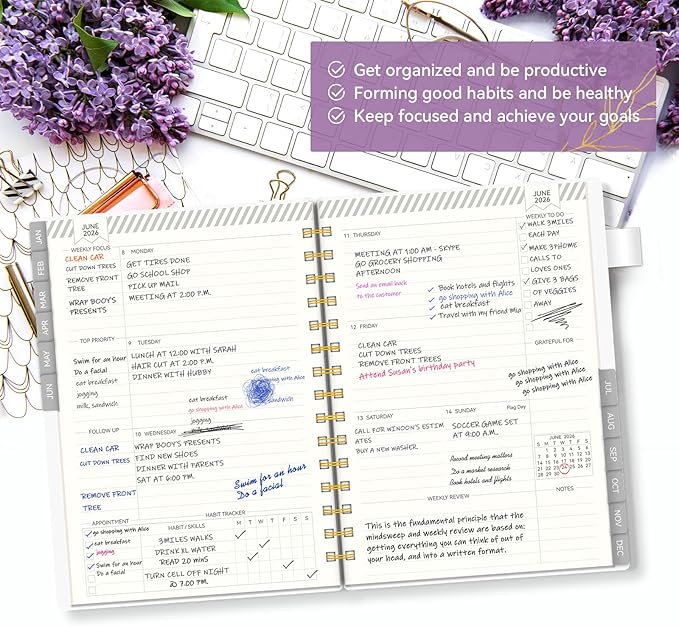 Get organized and be productive
Forming good habits and be healthy
Keep focused and achieve your goals
JAN
FEB
MAR
APR
MAY
JUN
JUNE
2026
WEEKLY FOCUS
CLEAN CAR
CUT DOWN TREES
REMOVE FRONT
TREE
WRAP BOOY'S
PRESENTS
TOP PRIORITY
Swim for an hour
Do a facial
eat breakfast
jogging
milk, sandwich
FOLLOW UP
CLEAN CAR
CUT DOWN TREES
REMOVE FRONT
TREE
APPOINTMENT
go shopping with Alice
eat breakfast
jogging
Swim for an hour
Do a facial
8 MONDAY
GET TIRES DONE
GO SCHOOL SHOP
PICK UP MAIL
MEETING AT 2:00 P.M.
9 TUESDAY
LUNCH AT 12:00 WITH SARAH
HAIR CUT AT 2:00 P.M.
DINNER WITH HUBBY
eat breakfast
shopping with Alice
sandwich
eat breakfast
go shopping with Alice
jogging
10 WEDNESDAY
WRAP BOOY'S PRESENTS
FIND NEW SHOES
DINNER WITH PARENTS
SAT AT 6:00 PM
Swim for an hour
Do a facial
HABIT TRACKER
HABIT / SKILLS M T W T F S S
3 MILES WALKS
DRINK 1L WATER
READ 20 MINS
TURN CELL OFF NIGHT
@ 7.00 PM.
11 THURSDAY
MEETING AT 1:00 AM - SKYPE
GO GROCERY SHOPPING
AFTERNOON
Send an email back
to the customer
Book hotels and flights
go shopping with Alice
eat breakfast
Travel with my friend Mia
12 FRIDAY
CLEAN CAR
CUT DOWN TREES
REMOVE FRONT TREES
Attend Susan's birthday party
13 SATURDAY
CALL FOR WINDON'S ESTIM
ATES
BUY A NEW WASHER.
14 SUNDAY Flag Day
SOCCER GAME SET
AT 9:00 A.M.
Record meeting matters
Do a market research
Book hotels and flights
WEEKLY REVIEW
This is the fundamental principle that the
mindsweep and weekly review are based on:
getting everything you can think of out of
your head, and into a written format.
JUNE
2026
WEEKLY TO DO
WALK 3MILES
EACH DAY
MAKE 3THOME
CALLS TO
LOVES ONES
GIVE 3 BAGS
OF VEGGIES
AWAY
GRATEFUL FOR
go shopping with Alice
go shopping with Alice
go shopping with Alice
JUNE 2026
S M T W T F S
1 2 3 4 5 6
7 8 9 10 11 12 13
14 15 16 17 18 19 20
21 22 23 24 25 26 27
28 29 30
NOTES
JUL
AUG
SEP
OCT
NOV
DEC